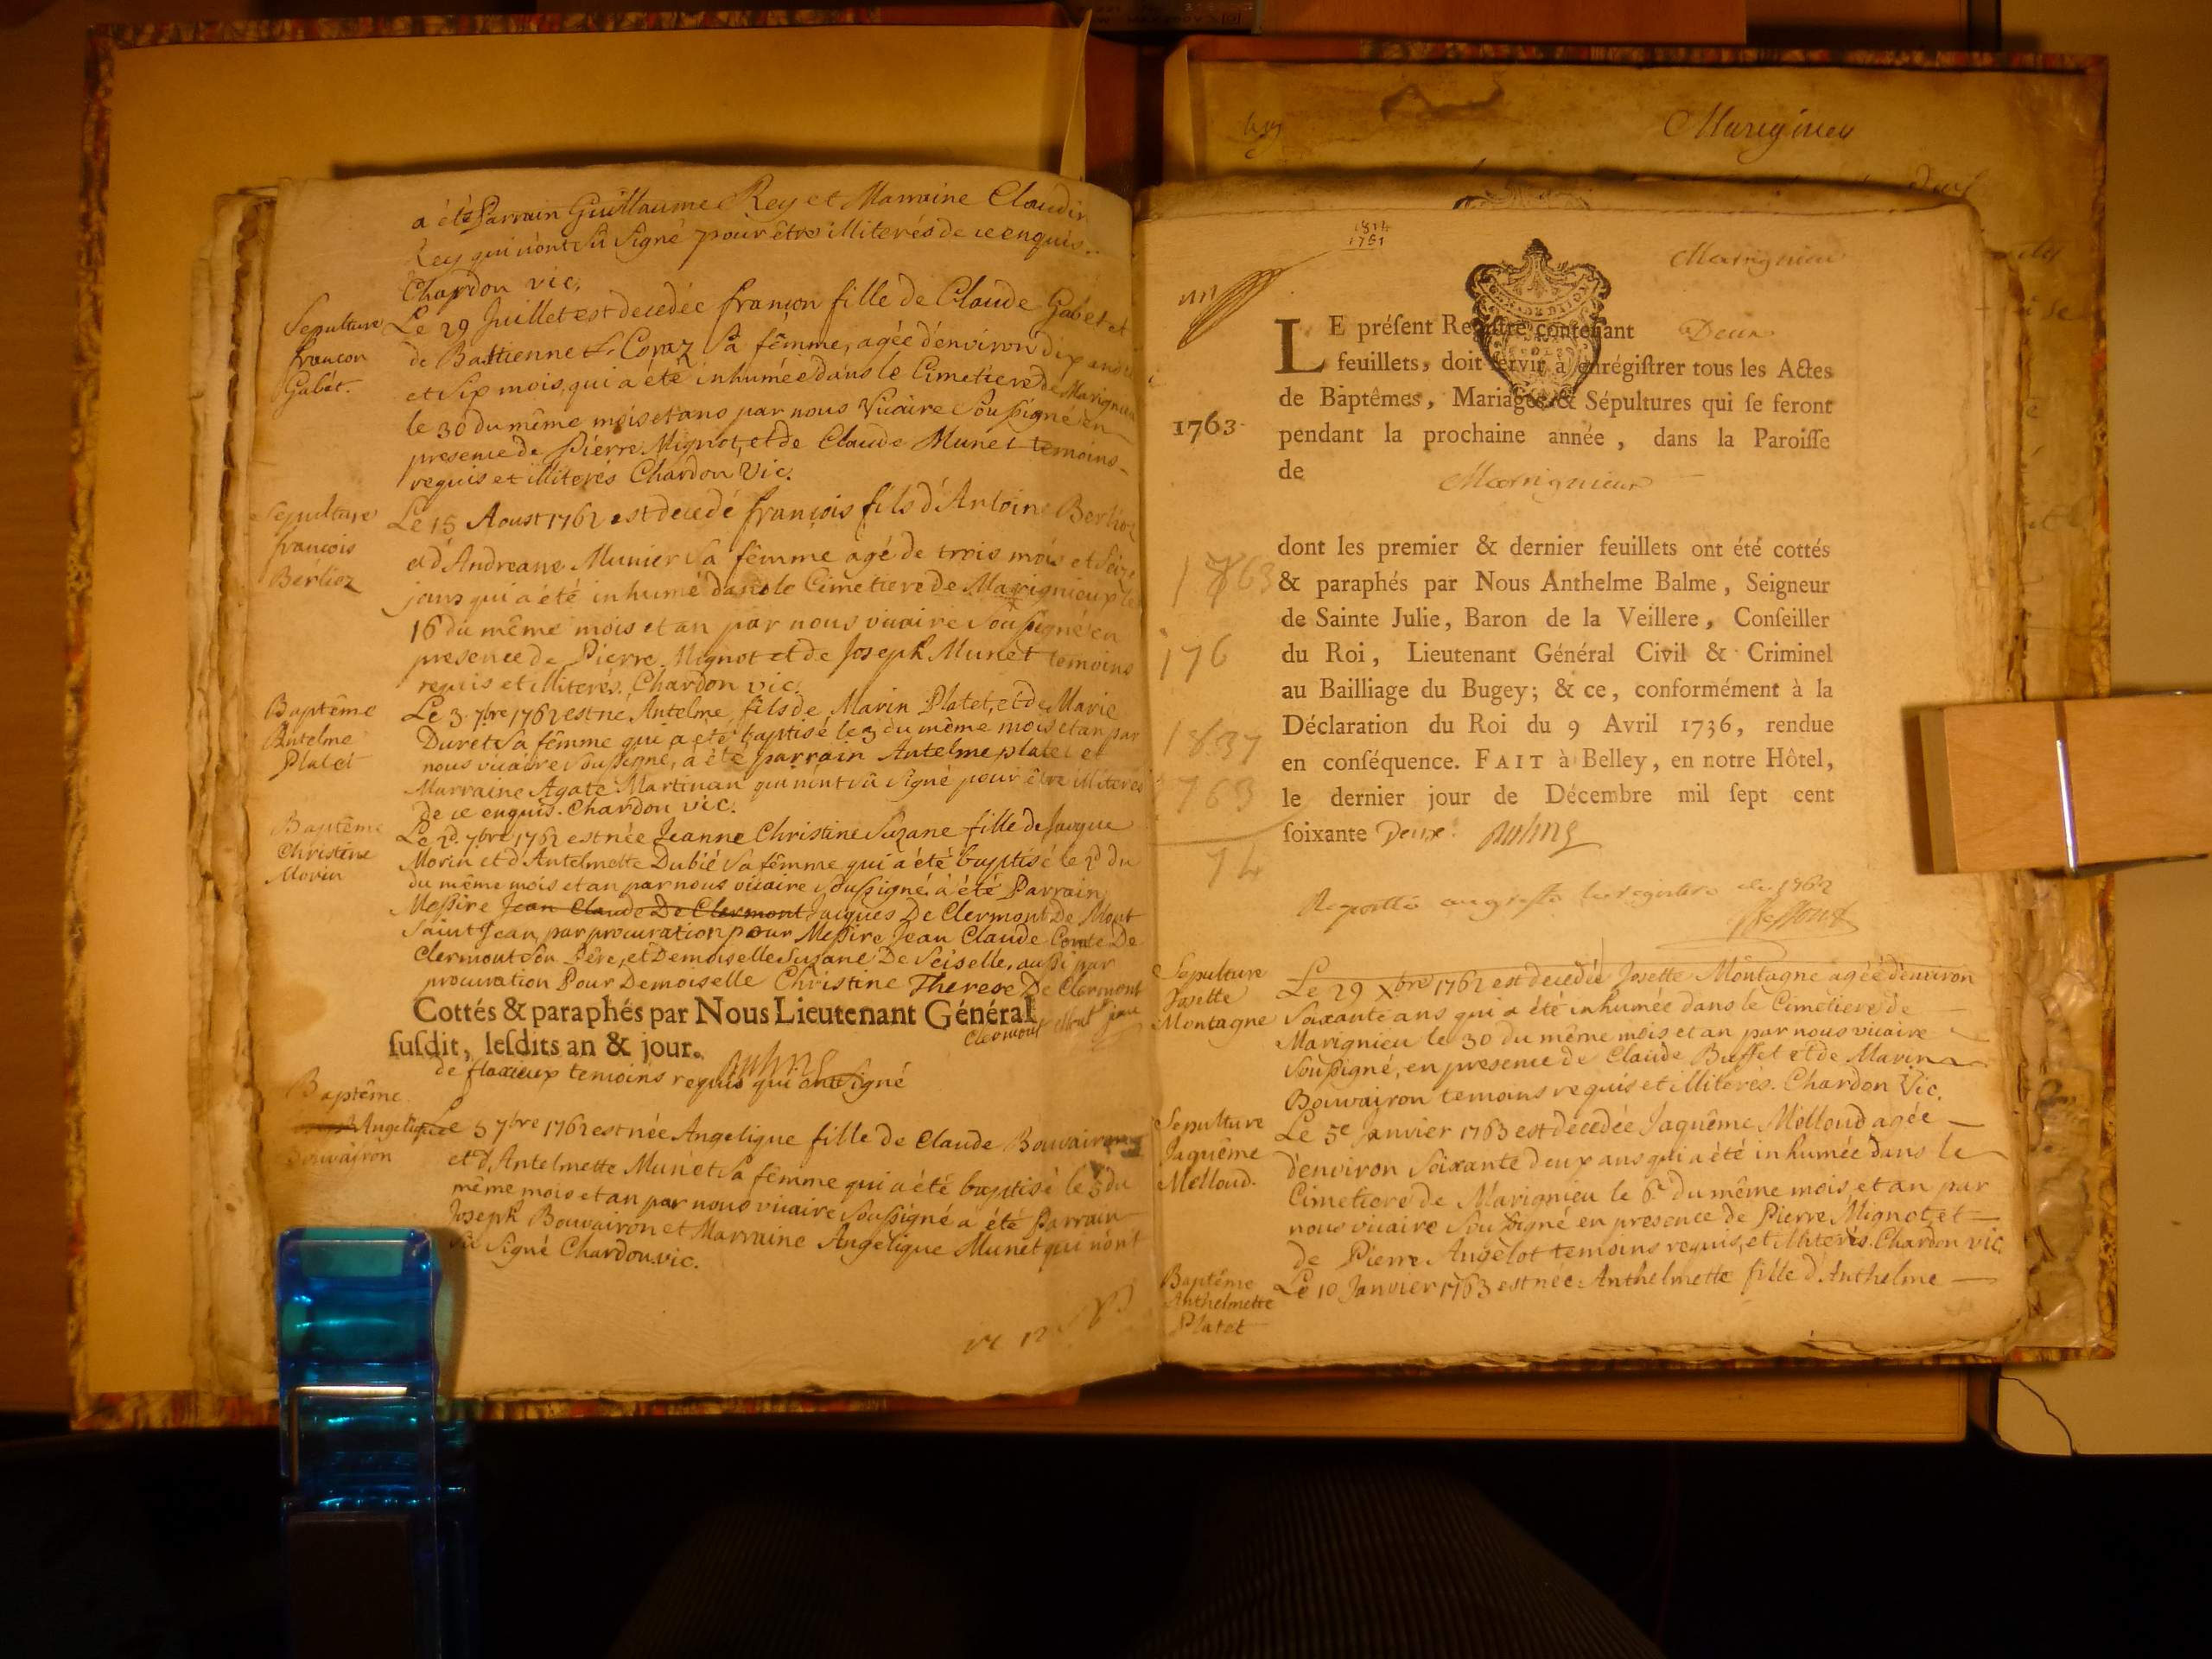 a été Parrain Guillaume Rey et Marraine Claudin
Rey qui n'ont sû signé pour être illiterés de ce enquis..
Chardon vic.
Sepulture
francon
Gabet.
Le 29 Juillet est decedée françon fille de Claude Gabet et
de Bastienne Copaz sa fême, agée d'environ dix ans
et six mois, qui a été inhumée dans le Cimetiere de Marignieu
le 30 du même mois et ans par nous Vicaire Soussigné en
presence de Pierre Mignot, et de Claude Munet temoins
requis et illiterés Chardon Vic.
Sepulture
francois
Berlioz
Le 15 Aoust 1762 est decedé francois fils d'Antoine Berlioz
et d'Andreane Munier sa fême agé de trois mois et seize
jours qui a été inhumé dans le Cimetiere de Marignieux le
16 du même mois et an par nous vicaire Soussigné en
presence de Pierre Mignot et de Joseph Munet temoins
requis et illiterés. Chardon vic.
Baptême
Antelme
Platet
Le 3 7bre 1762 est né Antelme fils de Marin Platet, et de Marie
Duret sa fême qui a eté baptisé le 3 du même mois et an par
nous vicaire soussigné, a été parrain Antelme platet et
Marraine Agate Martinan qui n'ont sû signé pour être illiterés
de ce enquis. Chardon vic.
Baptême
Christine
Morin
Le 2d 7bre 1762 est née Jeanne Christine Suzane fille de Jacque
Morin et d'Antelmette Dubié sa fême qui a été baptisé le 2d du
du même mois et an par nous vicaire soussigné, a été Parrain
Messire Jean Claude De Clermont Jacques De Clermont De Mont
Saint Jean par procuration pour Messire Jean Claude Comte De
Clermont son Père, et Demoiselle Suzane De Seiselle, aussi par
procuration Pour Demoiselle Christine Therese De Clermont
Cottés & paraphés par Nous Lieutenant Général
Clermont Mont jean
ſuſdit, leſdits an & jour.
de flaxieux temoins requis qui ont signé
Baptême
Angelique
Bouvairon
Le 5 7bre 1762 est née Angelique fille de Claude Bouvairon
et d'Antelmette Munet sa fême qui a été baptisé le 5 du
même mois et an par nous vicaire soussigné a été Parrain
Joseph Bouvairon et Marraine Angelique Munet qui n'ont
sû signé Chardon vic.
Marignieu
1814
1751
Marignieu
un
LE préſent Regiſtre contenant Deux
feuillets, doit ſervir à enrégiſtrer tous les Actes
de Baptêmes, Mariages & Sépultures qui ſe feront
1763.
pendant la prochaine année, dans la Paroiſſe
de Marignieux
dont les premier & dernier feuillets ont été cottés
1763
& paraphés par Nous Anthelme Balme, Seigneur
de Sainte Julie, Baron de la Veillere, Conſeiller
176
du Roi, Lieutenant Général Civil & Criminel
au Bailliage du Bugey; & ce, conformément à la
1837
Déclaration du Roi du 9 Avril 1736, rendue
en conſéquence. FAIT à Belley, en notre Hôtel,
1763
le dernier jour de Décembre mil ſept cent
ſoixante Deux. Balme
74
Raporttés au greffe le registre de 1762
Sepulture
Josette
Montagne
Le 29 Xbre 1762 est decedée Josette Montagne agée d'environ
soixante ans qui a été inhumée dans le Cimetiere de
Marignieu le 30 du même mois et an par nous vicaire
soussigné, en presence de Claude Buffet et de Marin
Bouvairon temoins requis et illiterés. Chardon Vic.
Sepulture
Jaquême
Melloud.
Le 5e Janvier 1763 est decedée Jaquême Melloud agée
d'environ soixante deux ans qui a été inhumée dans le
Cimetiere de Marignieu le 6e du même mois, et an par
nous vicaire soussigné en presence de Pierre Mignot et
de Pierre Angelot temoins requis, et illiterés. Chardon vic.
Baptême
Anthelmette
Platet
Le 10 Janvier 1763 est née Anthelmette fille d'Anthelme